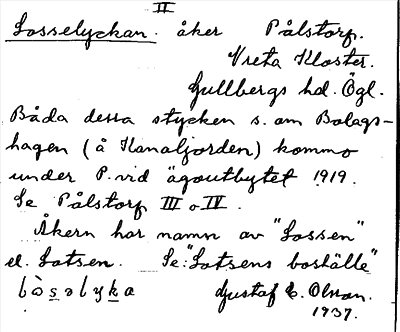 II
Losselyckan. åker Pålstorp.
Vreta Kloster.
Gullbergs hd. Ögl.
Båda dessa stycken s. om Bolags-
hagen (å Kanaljorden) kommo
under P. vid ägoutbytet 1919.
Se Pålstorp III o IV.
Åkern har namn av "Lossen"
el. Lotsen. Se: "Lotsens boställe"
Gustaf E. Olsson.
1937.